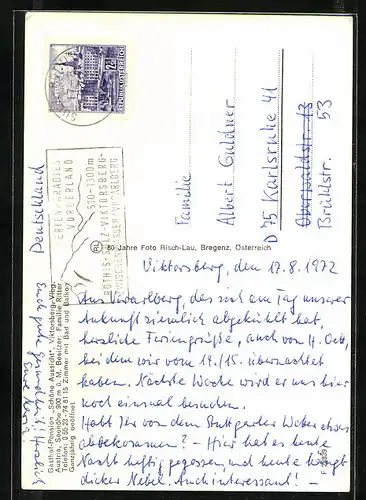 Familie
Albert Guldner
D 75 Karlsruhe 41
Oberwaldstr. 13
Brühlstr. 53
Deutschland
FERIENPARADIES
VORDERLAND
510-1300m
RÖTHIS-SULZ-VIKTORSBERG-
ZWISCHENWASSER/VORARLBERG
REPUBLIK ÖSTERREICH
80 Jahre Foto Risch-Lau, Bregenz, Österreich
Gasthof-Pension „Schöne Aussicht", Viktorsberg-Vlbg.
Austria, Seehöhe 900 m ü. M., Besitzer: Familie Ritter
Telefon: 0 55 23 - 74 81 15 Zimmer mit Bad und Balkon
Ganzjährig geöffnet
Viktorsberg, den 17.8.1972
Aus Vorarlberg, das sich am Tag unserer
Ankunft ziemlich abgekühlt hat,
herzliche Feriengrüße, auch von H. Ott,
bei dem wir vom 14./15. übernachtet
haben. Nächste Woche wird er uns hier
noch einmal besuchen.
Habt Ihr von dem Stuttgarter Wetter etwas
abbekommen? – Hier hat es heute
Nacht heftig gegossen und heute hängt
dicker Nebel. Auch interessant! –
Euch gute Gesundheit u.
Eure